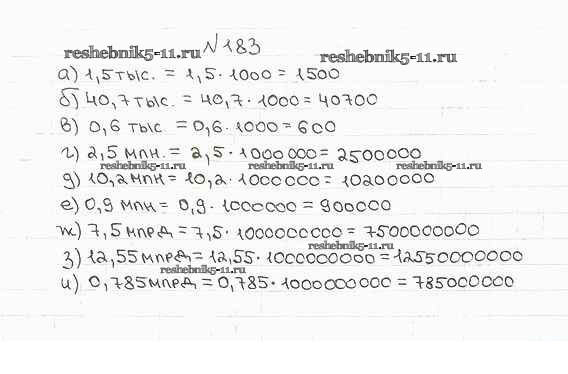 reshebnik5-11.ru №183 reshebnik5-11.ru
а) 1,5 тыс. = 1,5 · 1000 = 1500
б) 40,7 тыс. = 40,7 · 1000 = 40700
в) 0,6 тыс = 0,6 · 1000 = 600
г) 2,5 млн. = 2,5 · 1000000 = 2500000
reshebnik5-11.ru reshebnik5-11.ru reshebnik5-11.ru
д) 10,2 млн = 10,2 · 1000000 = 10200000
е) 0,9 млн = 0,9 · 1000000 = 900000
ж) 7,5 млрд = 7,5 · 1000000000 = 7500000000
reshebnik5-11.ru
з) 12,55 млрд = 12,55 · 1000000000 = 12550000000
reshebnik5-11.ru
и) 0,785 млрд = 0,785 · 1000000000 = 785000000